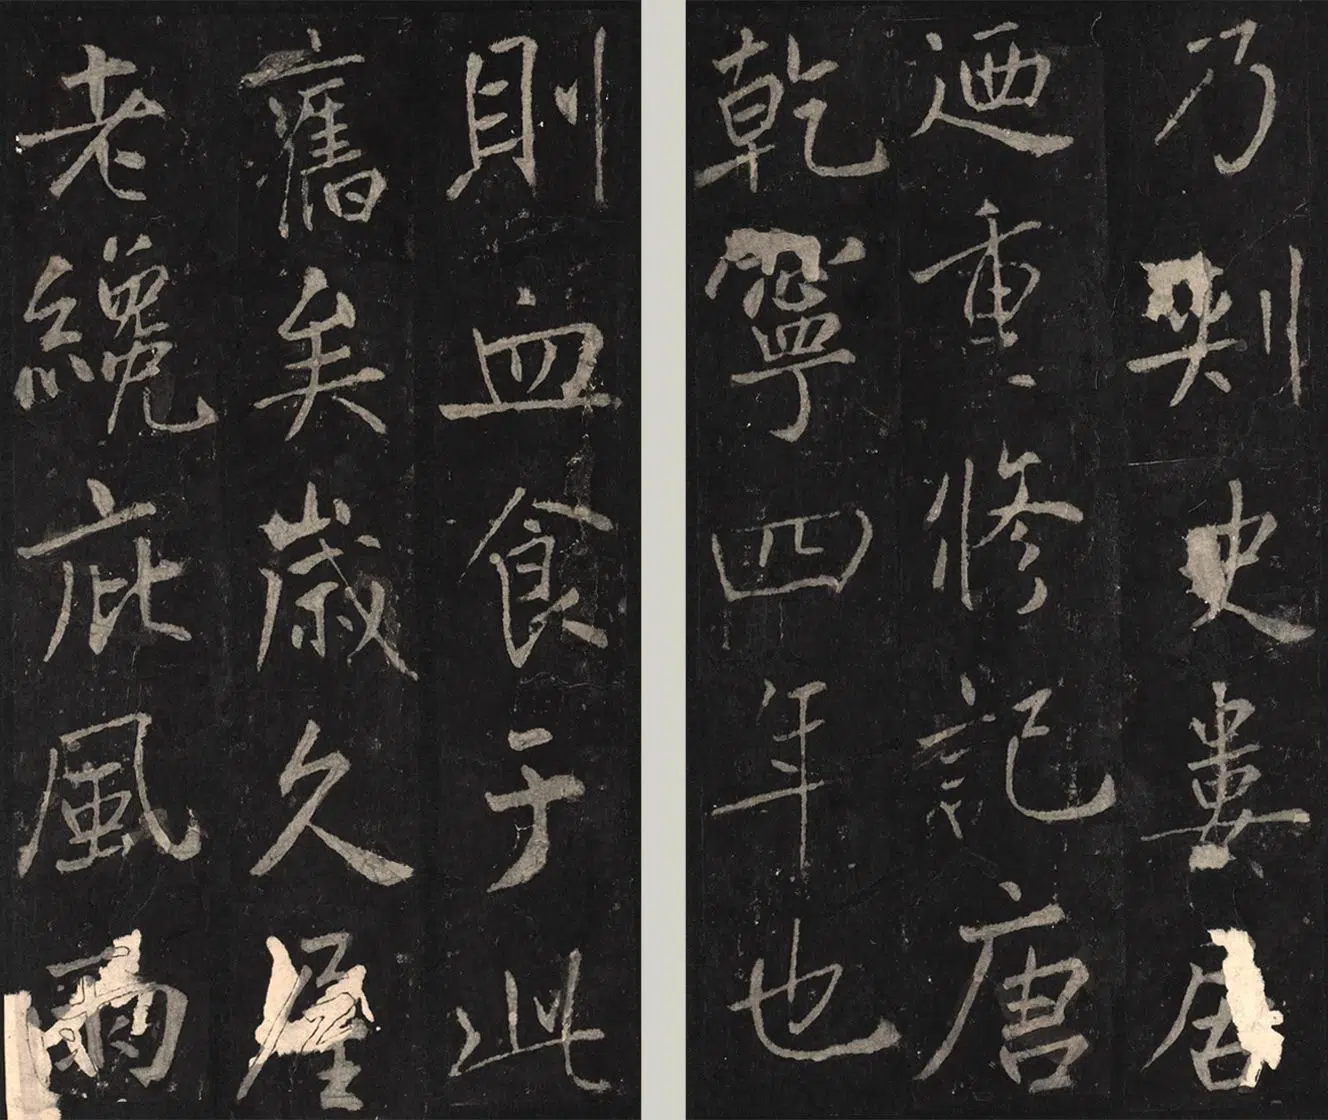 乃刺史婁居
迺重修記唐
乾寧四年也
則血食于此
舊矣歲久屋
老纔庇風雨